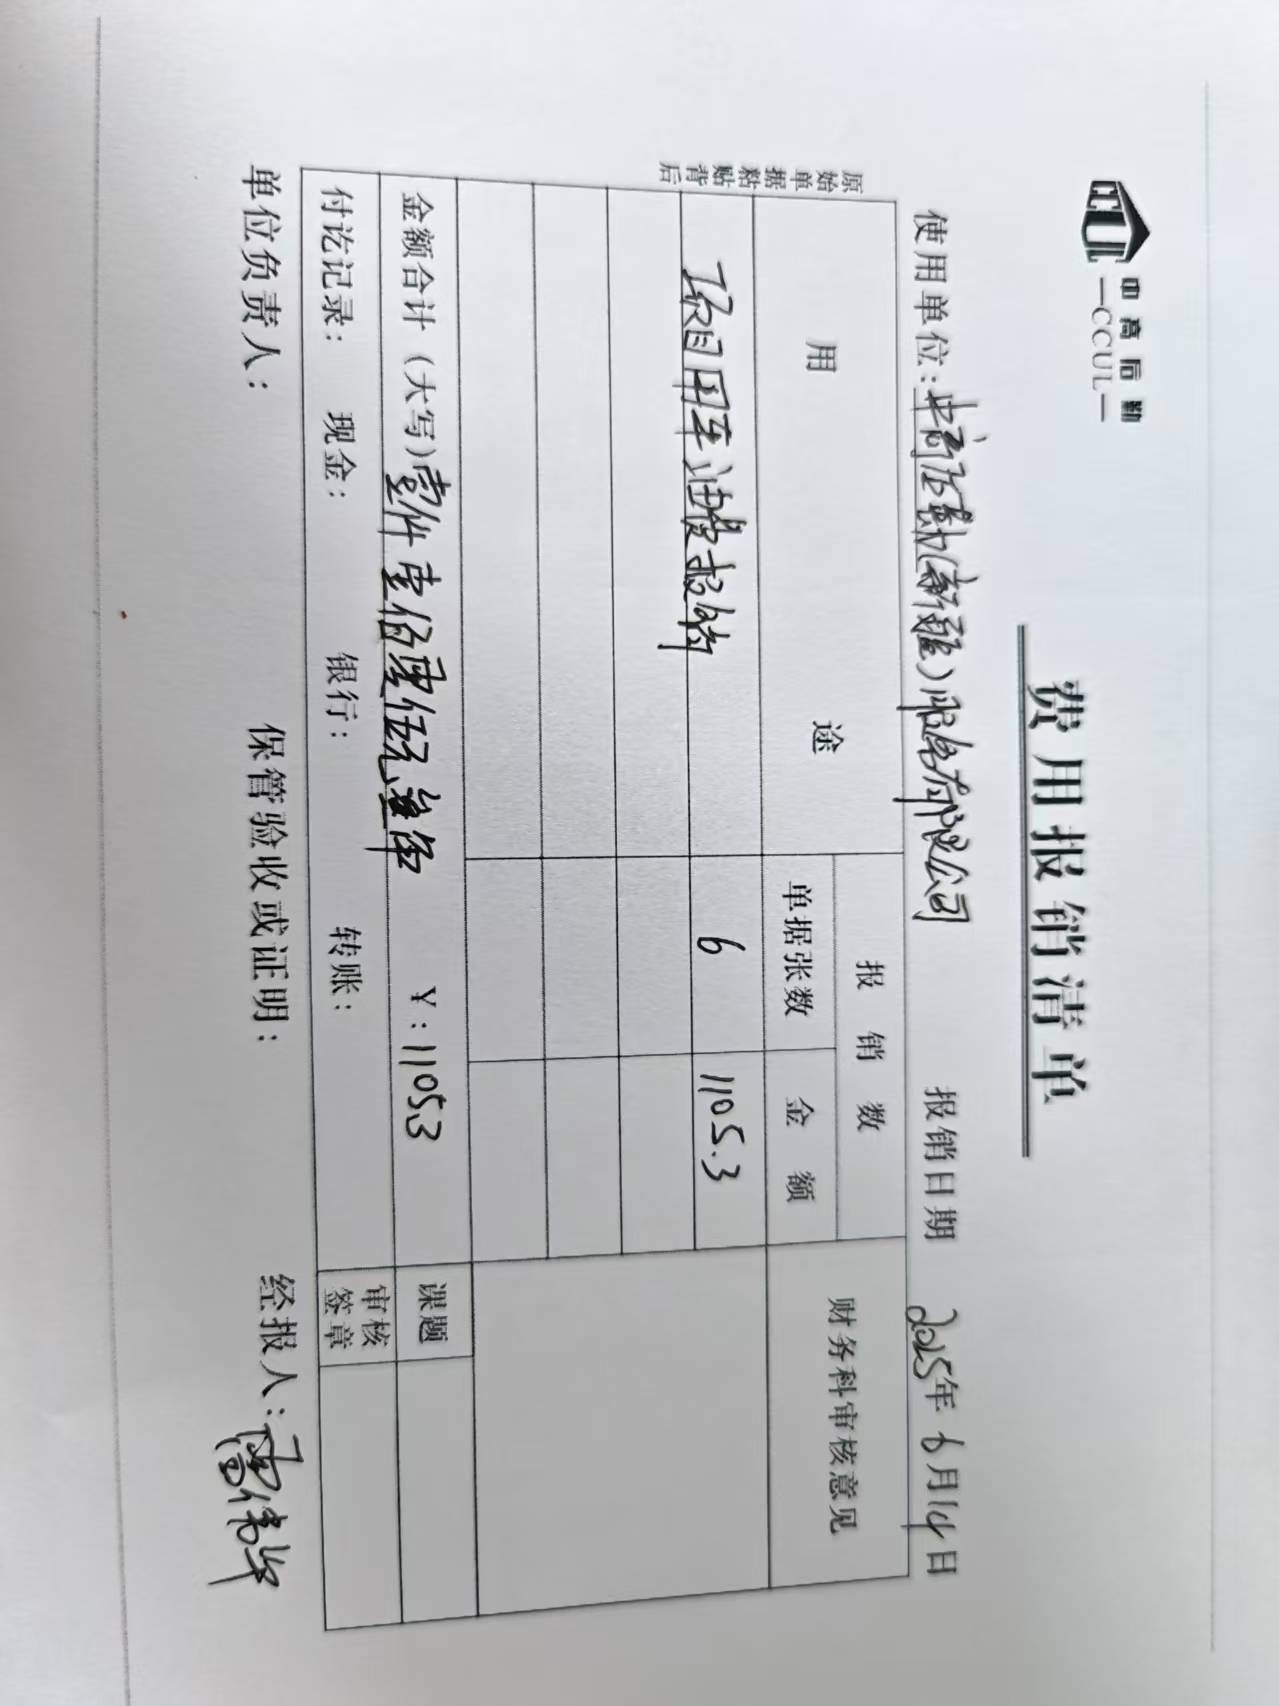 中高后勤
—CCUL—
费用报销清单
使用单位：中高后勤(新疆)服务有限公司 报销日期 2025年6月14日
原始单据粘贴背后
用途 报销数 财务科审核意见
单据张数 金额
项目用车油费报销 6 1105.3
金额合计（大写）壹仟壹佰零伍元叁角 ¥：1105.3 课题
付讫记录： 现金： 银行： 转账： 审核签章
单位负责人： 保管验收或证明： 经报人：